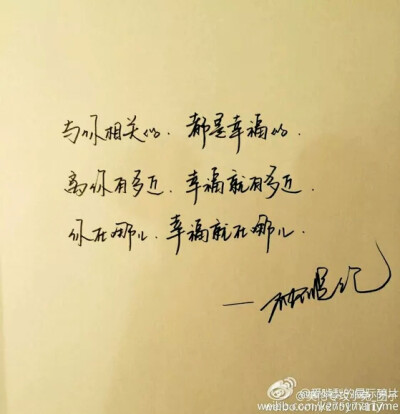 与你相关的.都是幸福的.
离你有多近.幸福就有多近.
你在哪儿.幸福就在哪儿.